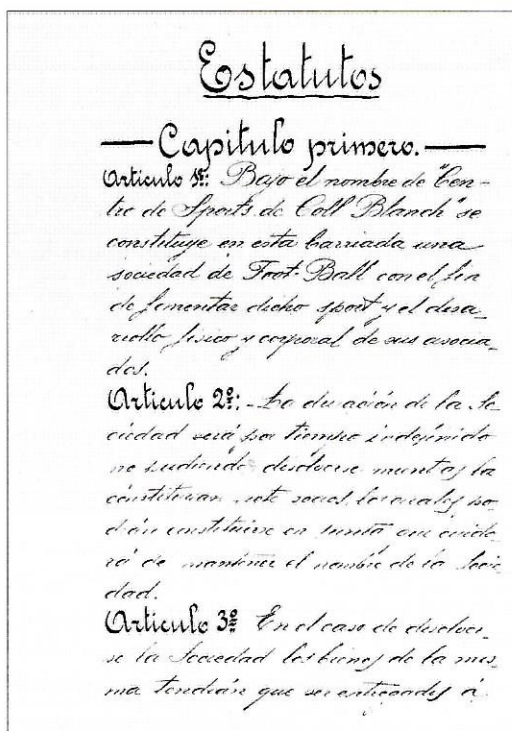 Estatutos
Capitulo primero.
Articulo 1º: Bajo el nombre de "Cen-
tre de Sports de Coll Blanch" se
constituye en esta barriada una
sociedad de Foot-Ball con el fin
de fomentar dicho sport y el desa-
rrollo fisico y corporal de sus asocia-
dos.
Articulo 2º: - La duración de la So-
ciedad será por tiempo indefinido
no pudiendo disolverse mientras la
constituyan siete socios, los cuales po-
drán constituirse en junta que cuida-
rá de mantener el nombre de la Socie-
dad.
Articulo 3º En el caso de disolver-
se la Sociedad los bienes de la mis-
ma tendrán que ser entregados á